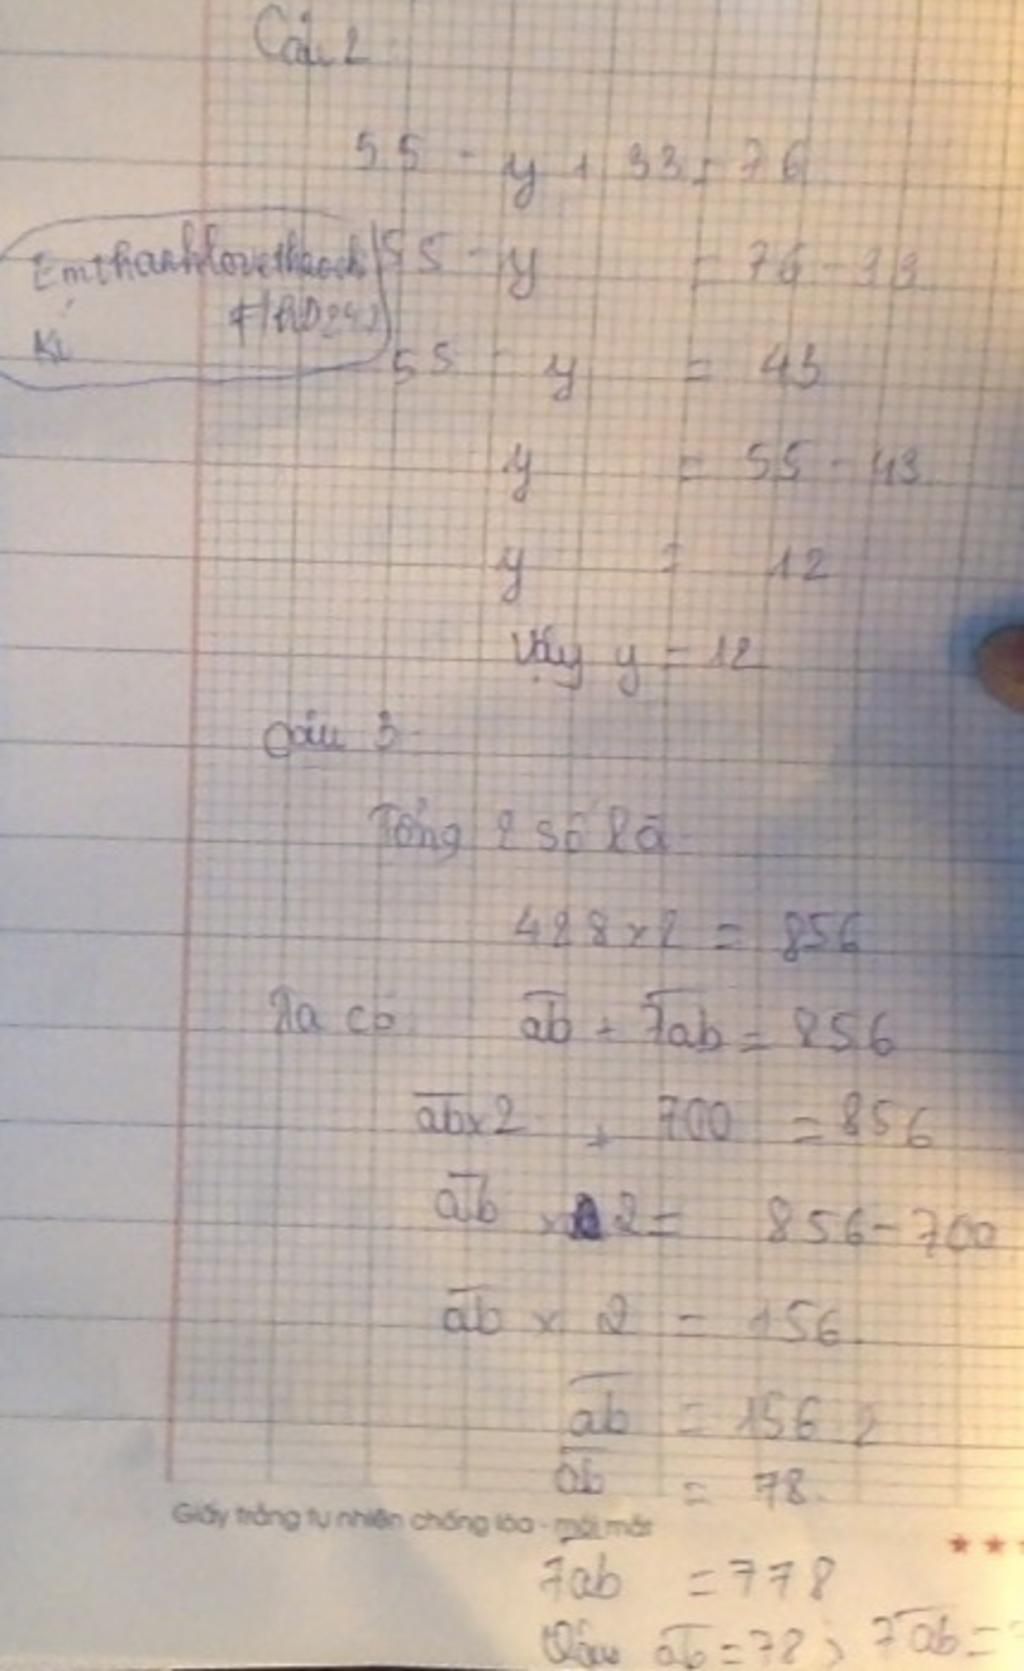 Câu 2
55 - y + 33 = 76
55 - y = 76 - 33
55 - y = 43
y = 55 - 43
y = 12
Vậy y = 12
Câu 3
Tổng 2 số là
428 x 2 = 856
Ta có ab + 7ab = 856
ab x 2 + 700 = 856
ab x 2 = 856 - 700
ab x 2 = 156
ab = 156 : 2
ab = 78
Giấy trắng tự nhiên chống lóa - mỏi mắt
7ab = 778
Vậy ab = 78; 7ab =